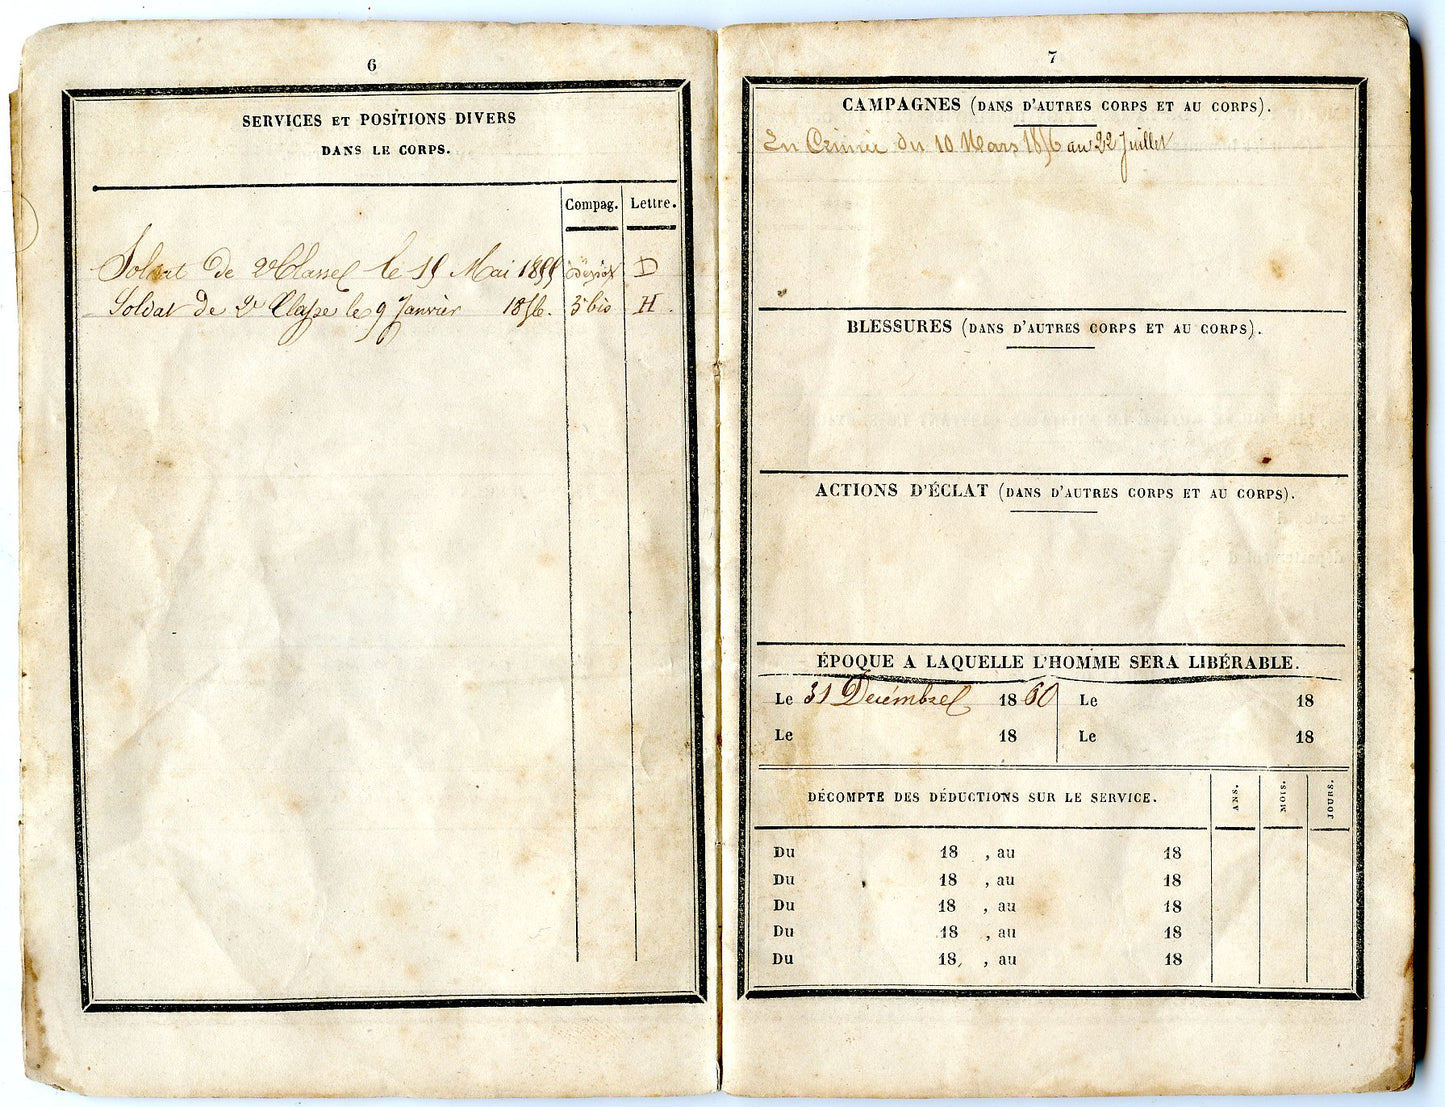 6
SERVICES ET POSITIONS DIVERS
DANS LE CORPS.
Compag. Lettre.
Soldat de 2e Classe le 15 Mai 1855 D
Soldat de 2e Classe le 9 Janvier 1856. 3e bis H.
7
CAMPAGNES (DANS D'AUTRES CORPS ET AU CORPS).
En Crimée du 10 Mars 1856 au 22 Juillet
BLESSURES (DANS D'AUTRES CORPS ET AU CORPS).
ACTIONS D'ÉCLAT (DANS D'AUTRES CORPS ET AU CORPS).
ÉPOQUE A LAQUELLE L'HOMME SERA LIBÉRABLE.
Le 31 Decémbre 1860 Le 18
Le 18 Le 18
DÉCOMPTE DES DÉDUCTIONS SUR LE SERVICE. ANS. MOIS. JOURS.
Du 18 , au 18
Du 18 , au 18
Du 18 , au 18
Du 18 , au 18
Du 18 , au 18